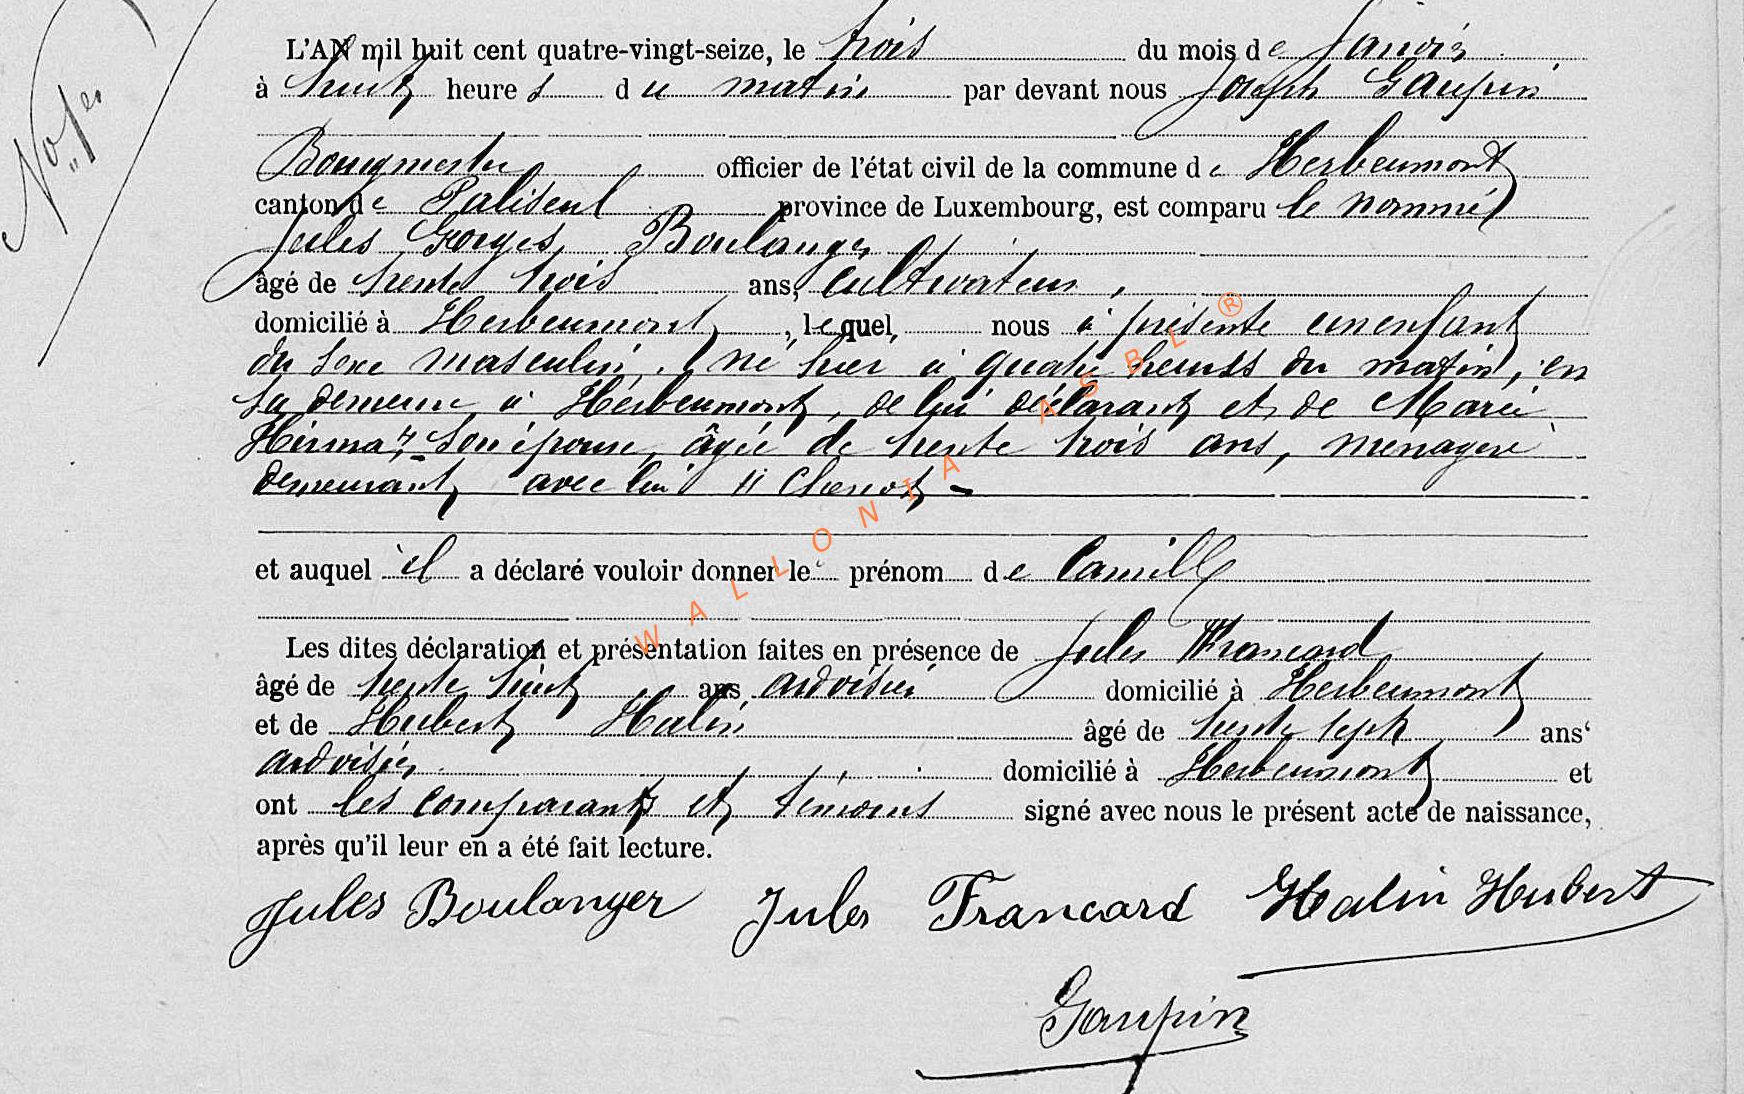 No 1er
L'AN mil huit cent quatre-vingt-seize, le trois du mois de Janvier
à huit heures du matin par devant nous Joseph Gaupin
Bourgmestre officier de l'état civil de la commune de Herbeumont
canton de Paliseul province de Luxembourg, est comparu le nommé
Jules Georges Boulanger
âgé de trente trois ans, cultivateur,
domicilié à Herbeumont, lequel, nous à présenté un enfant
du sexe masculin, né hier à quatre heures du matin, en
sa demeure à Herbeumont, de lui déclarant et de Marie
Hirma " son épouse, âgée de trente trois ans, ménagère
demeurant avec lui " Chenot -
et auquel il a déclaré vouloir donner le prénom de Camille
Les dites déclaration et présentation faites en présence de Jules Francard
âgé de trente huit ans ardoisier domicilié à Herbeumont
et de Hubert Halin âgé de trente sept ans
ardoisier domicilié à Herbeumont et
ont les comparants et témoins signé avec nous le présent acte de naissance,
après qu'il leur en a été fait lecture.
Jules Boulanger Jules Francard Halin Hubert
Gaupin
WALLONIA ASBL ®